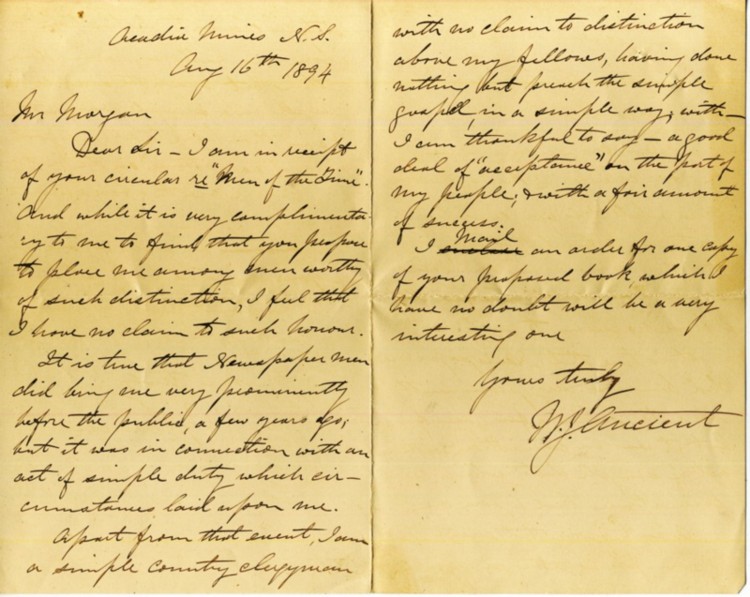 Acadia Mines N.S.
Aug 16th 1894
Mr Morgan
Dear Sir – I am in receipt
of your circular re "Men of the Time".
And while it is very complimenta-
ry to me to find that you propose
to place me among men worthy
of such distinction, I feel that
I have no claim to such honour.
It is true that Newspaper men
did bring me very prominently
before the public, a few years ago;
but it was in connection with an
act of simple duty which cir-
cumstances laid upon me.
Apart from that event, I am
a simple country clergyman
with no claim to distinction
above my fellows, having done
nothing but preach the simple
gospel in a simple way, with –
I am thankful to say – a good
deal of "acceptance" on the part of
my people; & with a fair amount
of success.
Mail
I enclose an order for one copy
of your proposed book, which I
have no doubt will be a very
interesting one
Yours truly
W.J. Ancient